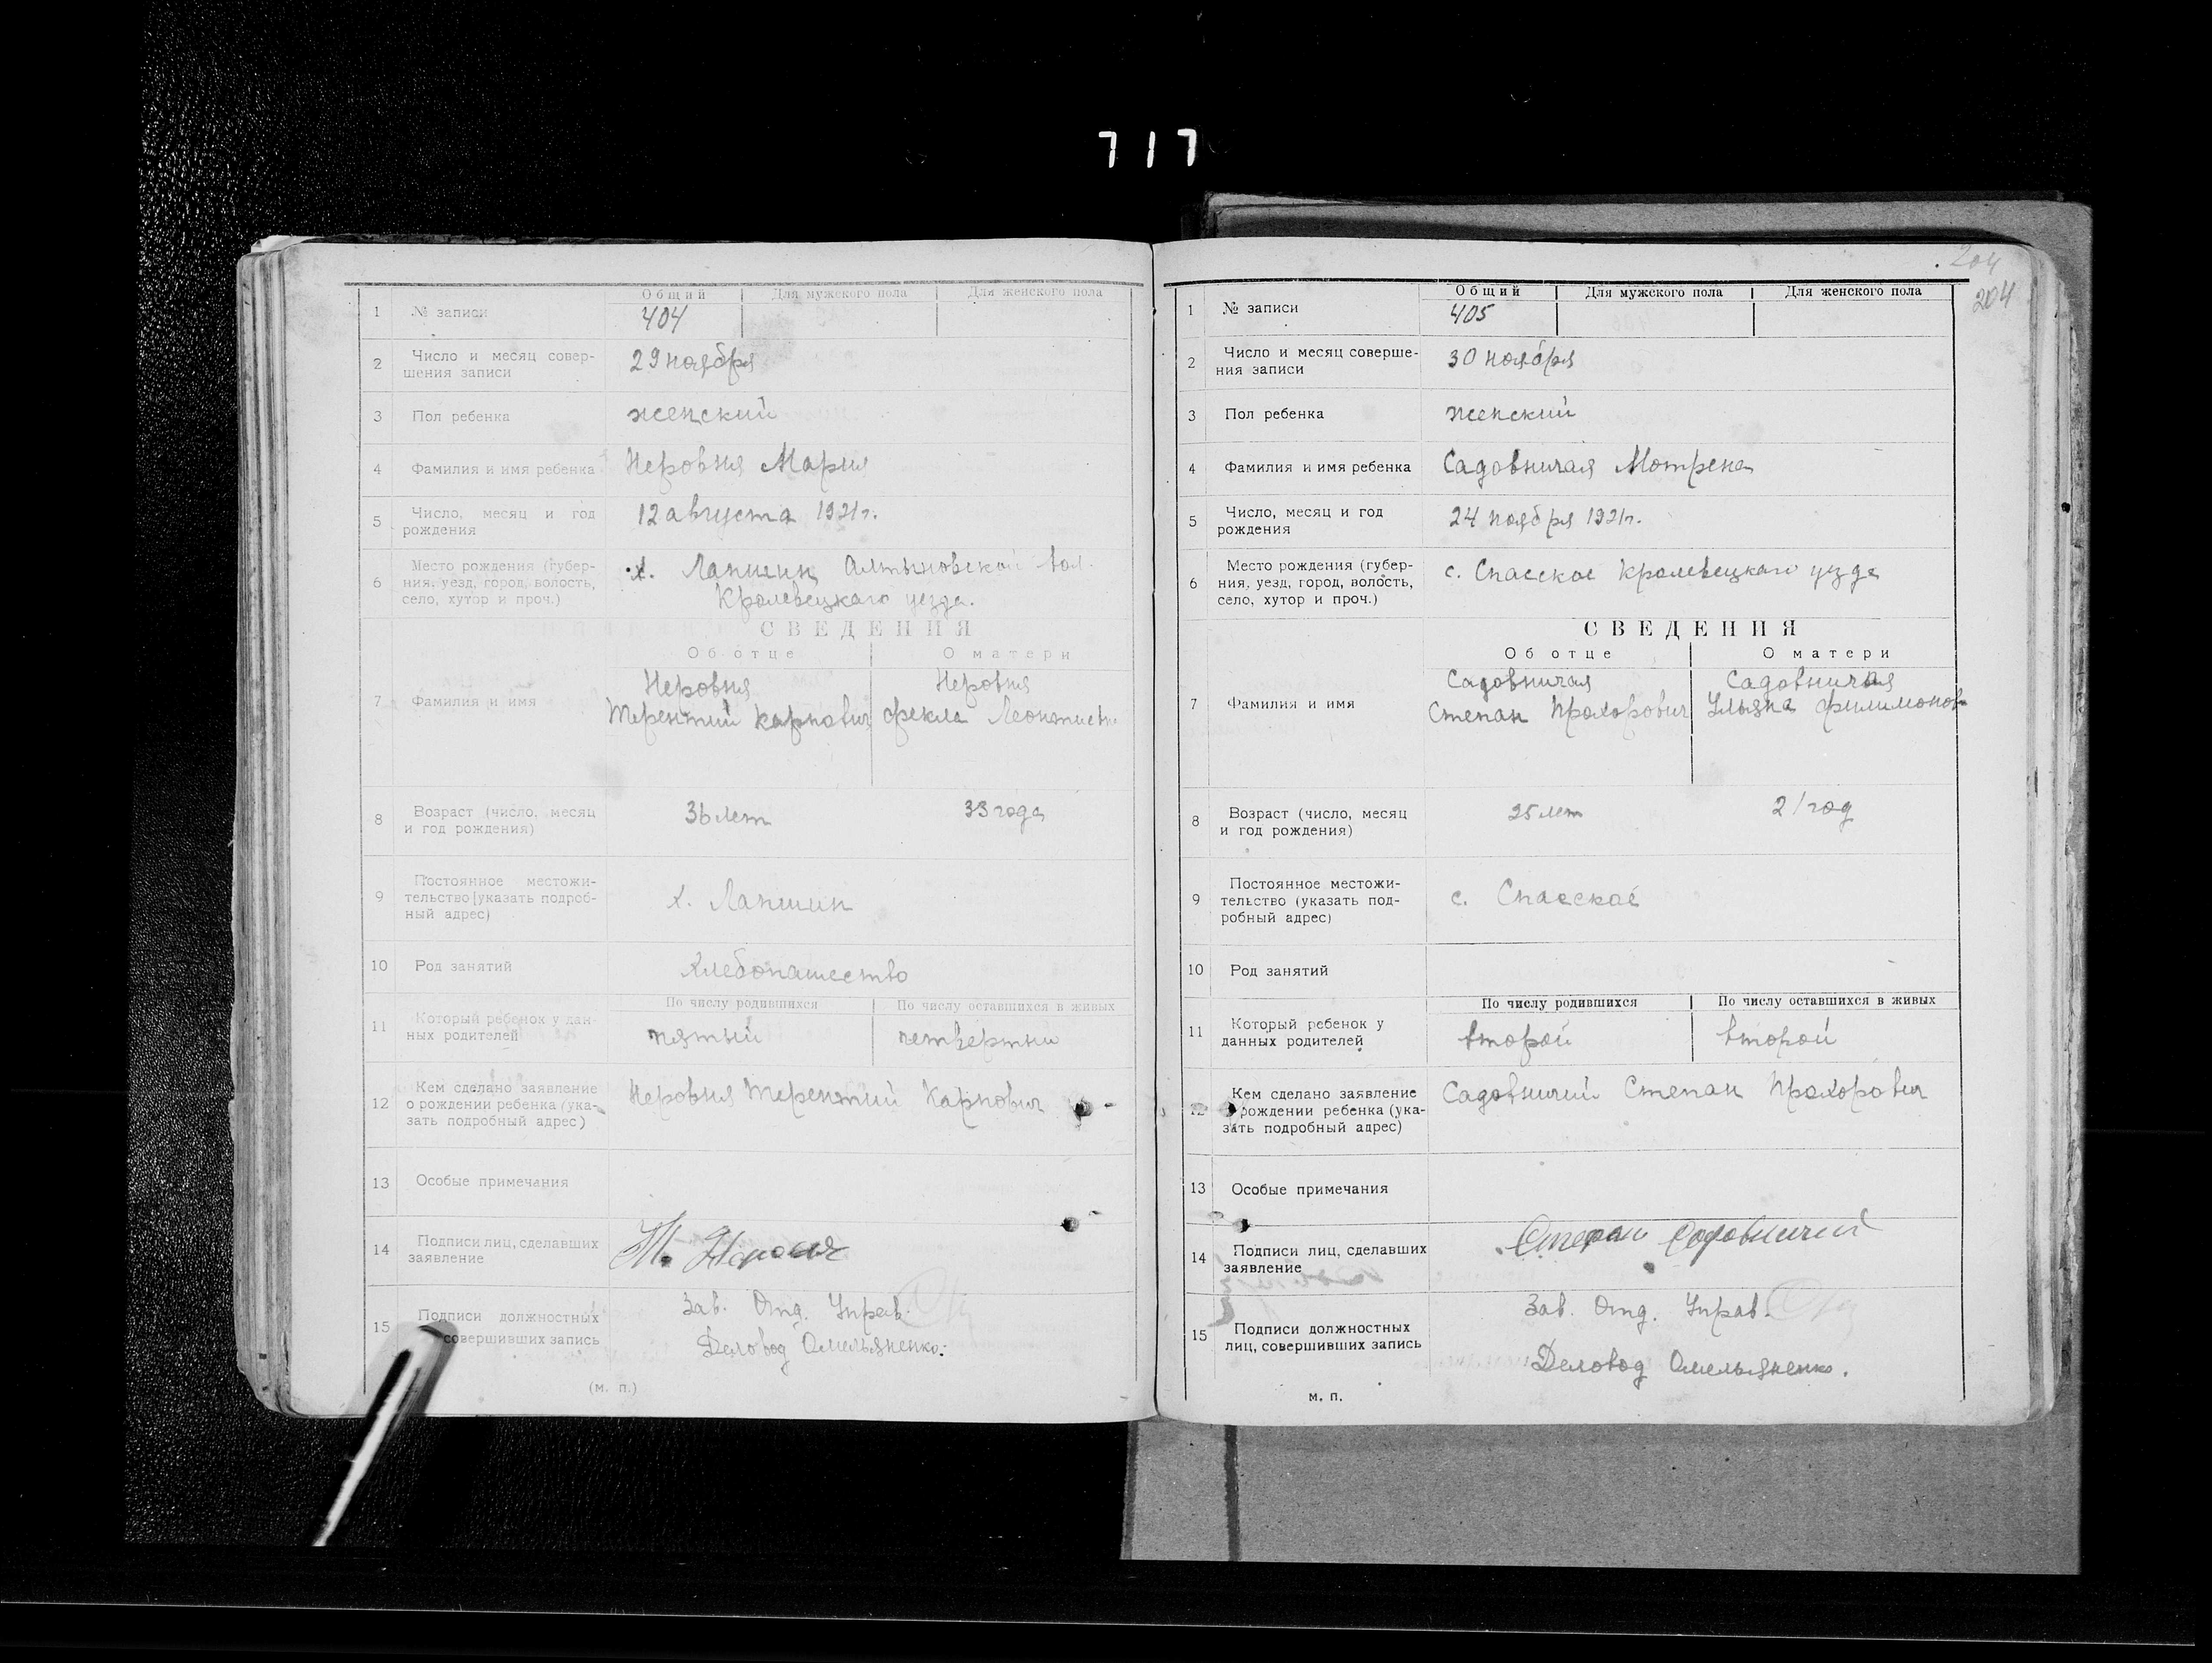 717
Общий Для мужского пола Для женского пола
1 № записи 404
2 Число и месяц совер-
шения записи 29 ноября
3 Пол ребенка женский
4 Фамилия и имя ребенка Неровня Мария
5 Число, месяц и год
рождения 12 августа 1921 г.
6 Место рождения (губер-
ния, уезд, город, волость,
село, хутор и проч.) х. Лапшин Алтыновской вол.
Кролевецкого уезда.
СВЕДЕНИЯ
Об отце О матери
7 Фамилия и имя Неровня Неровня
Терентий Карпович Фекла Леонтиевн
8 Возраст (число, месяц
и год рождения) 36 лет 33 года
9 Постоянное местожи-
тельство (указать подроб-
ный адрес) х. Лапшин
10 Род занятий Хлебопашество
По числу родившихся По числу оставшихся в живых
11 Который ребенок у дан-
ных родителей пятый четвертый
12 Кем сделано заявление
о рождении ребенка (ука-
зать подробный адрес) Неровня Терентий Карпович
13 Особые примечания
14 Подписи лиц, сделавших
заявление Т.
15 Подписи должностных
совершивших запись Зав. Отд. Управ.
Деловод Омельяненко.
(м. п.)
204
204
Общий Для мужского пола Для женского пола
1 № записи 405
2 Число и месяц соверше-
ния записи 30 ноября
3 Пол ребенка женский
4 Фамилия и имя ребенка Садовничая Мотрена
5 Число, месяц и год
рождения 24 ноября 1921 г.
6 Место рождения (губер-
ния, уезд, город, волость,
село, хутор и проч.) с. Спасское Кролевецкаго уезда
СВЕДЕНИЯ
Об отце О матери
7 Фамилия и имя Садовничая Садовничая
Степан Прохорович Ульяна Филимонов
8 Возраст (число, месяц
и год рождения) 25 лет 21 год
9 Постоянное местожи-
тельство (указать под-
робный адрес) с. Спасское
10 Род занятий
По числу родившихся По числу оставшихся в живых
11 Который ребенок у
данных родителей второй второй
12 Кем сделано заявление
рождении ребенка (ука-
зать подробный адрес) Садовничий Степан Прохорович
13 Особые примечания
14 Подписи лиц, сделавших
заявление Степан Садовничий
15 Подписи должностных
лиц, совершивших запись Зав. Отд. Управ.
Деловод Омельяненко.
м. п.